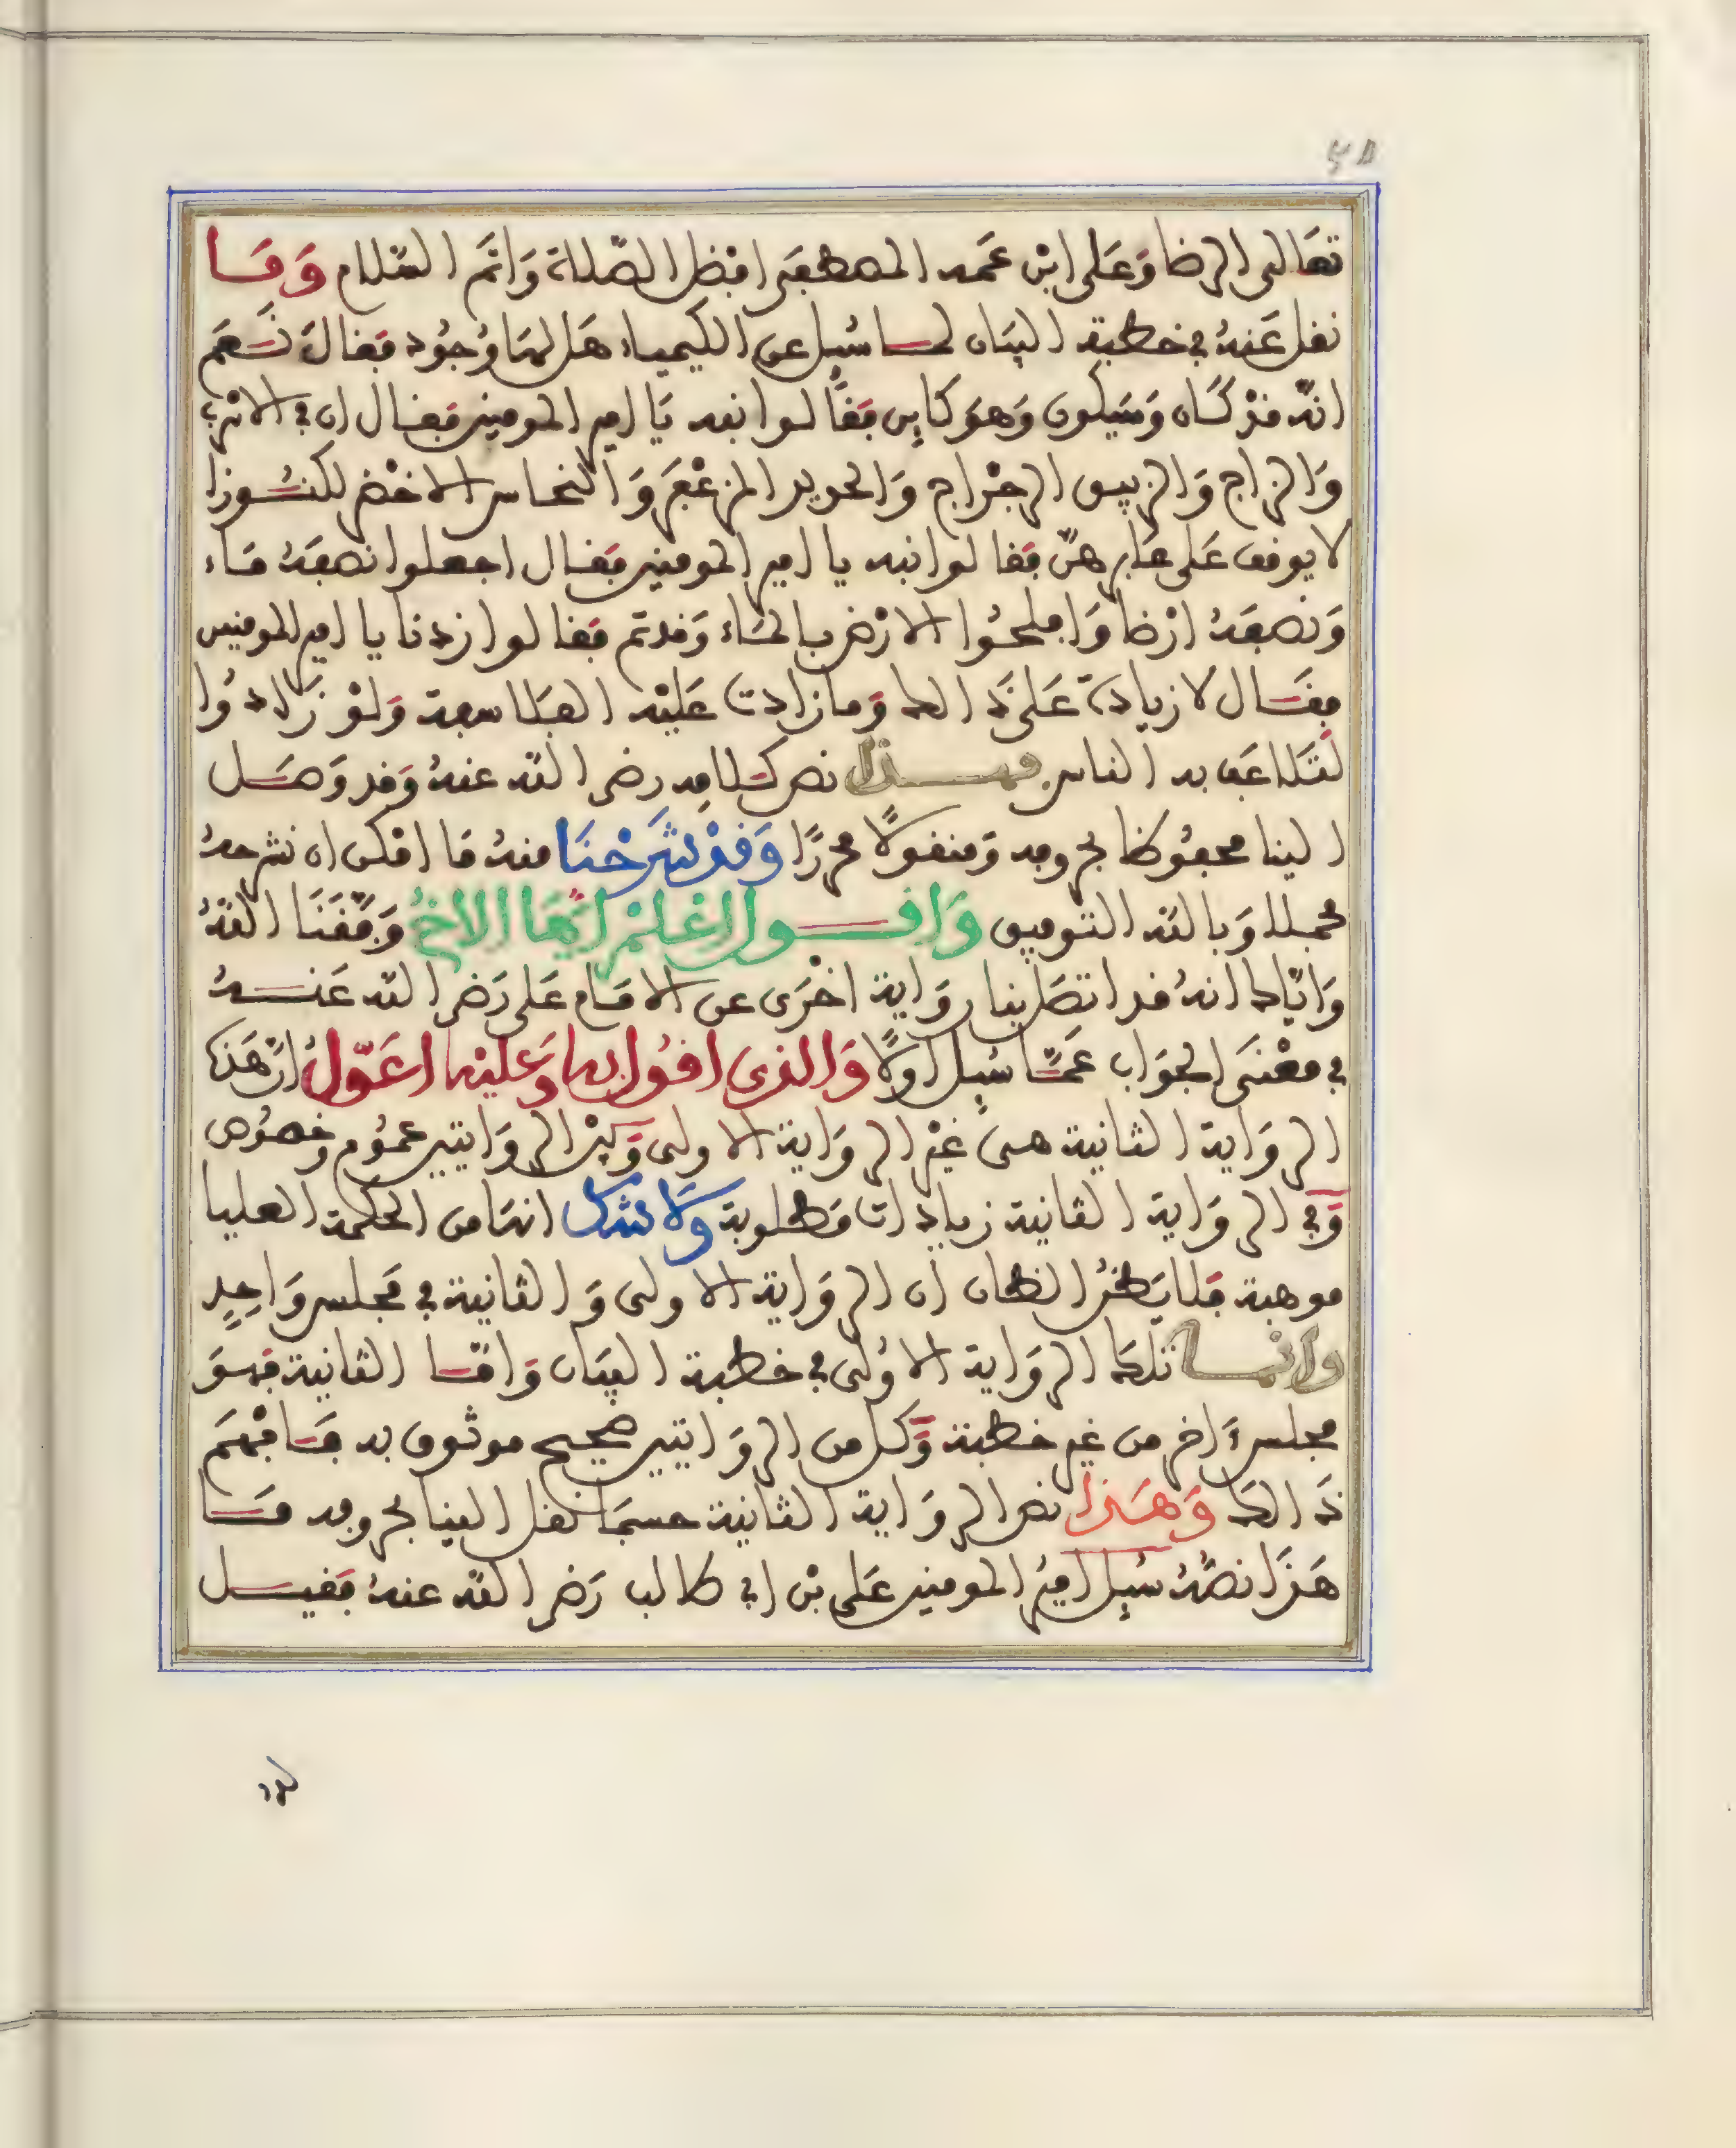 تعالى الرضا وعلى ابن عمه المصطفى افضل الصلاة واتم السلام وما
نقل عنه في خطبة البيان لما سُئل عن الكيمياء هل لها وجود فقال نعم
انه قد كان وسيكون وهو كاين فقالوا نعم يا امير المومنين فقال ان في الاسرب
والزاج والزيبق الرجراج والحديد المزعفر والنحاس الاخضر لكنوزا
لا يوقف على غابرهن فقالوا نبه يا امير المومنين فقال اجعلوا نصفه ماء
ونصفه ارضا وافلحوا الارض بالماء وقد تم فقالوا زدنا يا امير المومنين
فقال لا زيادة على ذالك وما زادت عليه الفلاسفة ولو زادوا
لتلاعب به الناس وهذا نص كلامه رضي الله عنه وقد وصل
الينا محفوظا بحروفه ومنقولا محررا وقد شرحنا منه ما امكن ان نشرحه
مجملا وبالله التوفيق واقول اعلم ايها الاخ وفقنا الله
واياك انه قد اتصل بنا رواية اخرى عن الامام علي رضي الله عنه
في معنى الجواب عما سُئل اولا والذي اقول به وعليه اعول ان هذه
الرواية الثانية هي غير الرواية الاولى وبين الروايتين عموم وخصوص
وفي الرواية الثانية زيادات مطلوبة ولا شك انها من الحكمة العليا
موهبة فلا يظن الظان ان الرواية الاولى والثانية في مجلس واحد
وانما تلك الرواية الاولى في خطبة البيان واما الثانية فهو
مجلس ءاخر من غير خطبة وكل من الروايتين صحيح موثوق به فافهم
ذالك وهذا نص الرواية الثانية حسبما نقل الينا بحروفه ما
هذا نصه سُئل امير المومنين علي بن ابي طالب رضي الله عنه فقيل
له